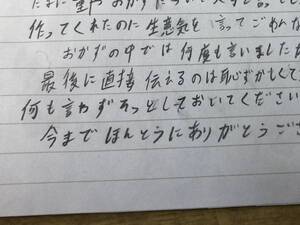 作ってくれたのに生意気を言ってごめんな
おかずの中では何度も言いましたが
最後に直接伝えるのは恥ずかしくて
何も言わずそっとしておいてください
今までほんとうにありがとうござ